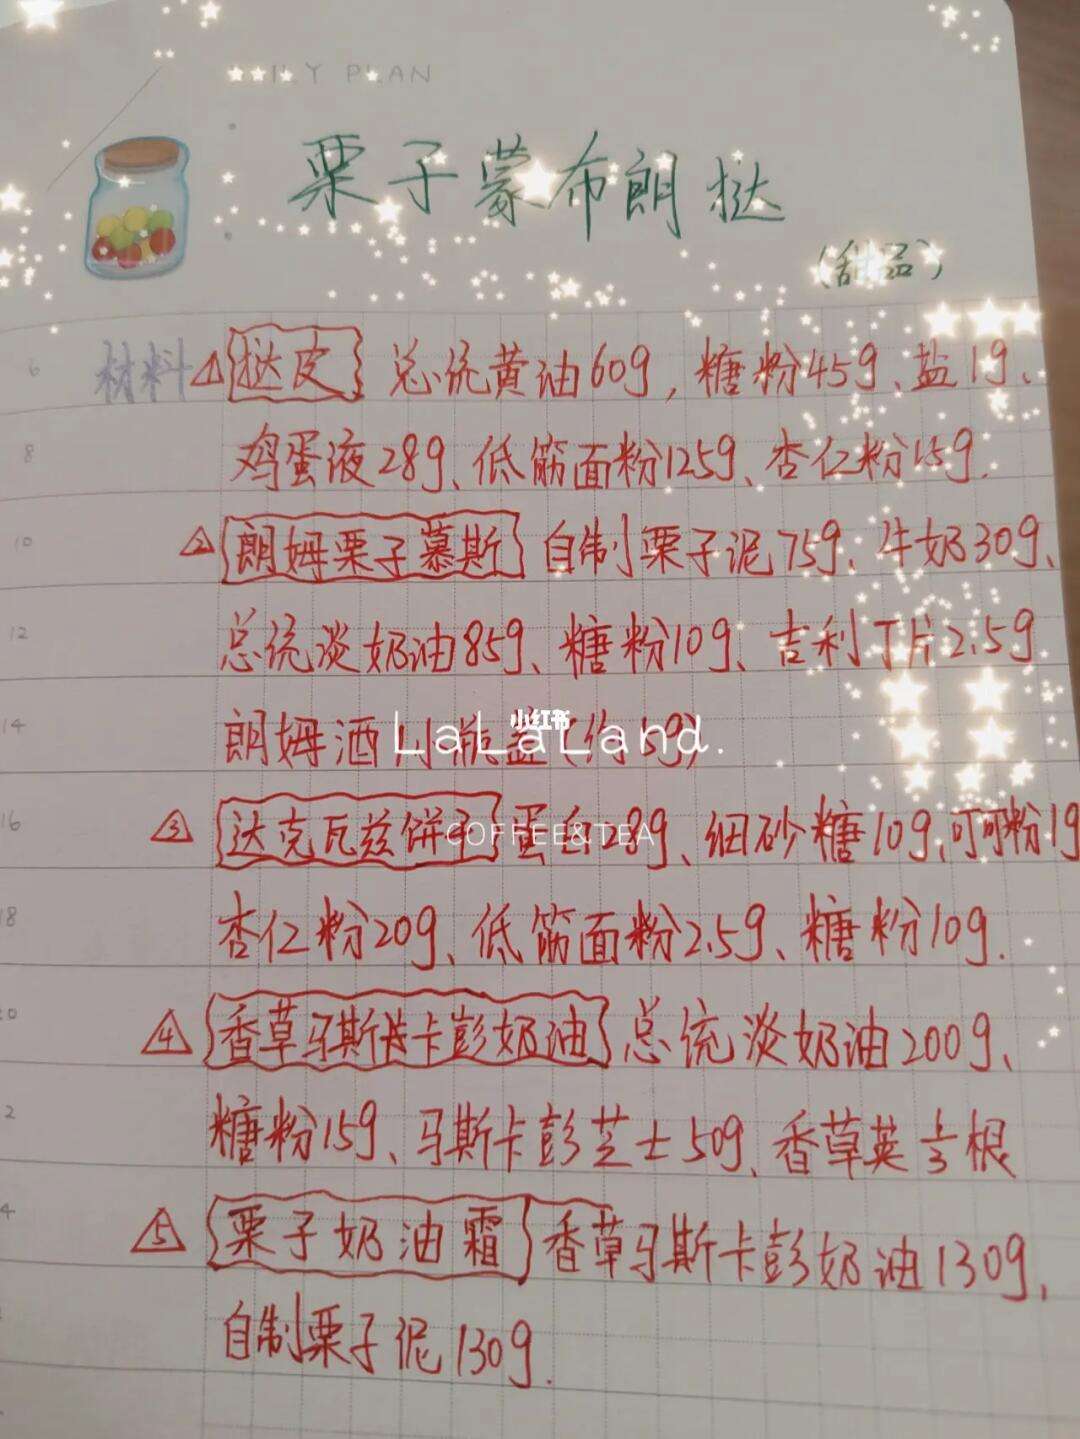 ILY PLAN
栗子蒙布朗挞
(甜品)
材料 1 挞皮 总统黄油60g,糖粉45g、盐1g、
鸡蛋液28g、低筋面粉125g、杏仁粉15g.
2 朗姆栗子慕斯 自制栗子泥75g、牛奶30g、
总统淡奶油85g、糖粉10g、吉利丁片2.5g
朗姆酒1小瓶盖(约5g)
小红书
LaLaLand.
3 达克瓦兹饼干 蛋白28g、细砂糖10g、可可粉1g
COFFEE&TEA
杏仁粉20g、低筋面粉2.5g、糖粉10g.
4 香草马斯卡彭奶油 总统淡奶油200g、
糖粉15g、马斯卡彭芝士50g、香草荚1/3根
5 栗子奶油霜 香草马斯卡彭奶油130g,
自制栗子泥130g.
6
8
10
12
14
16
18